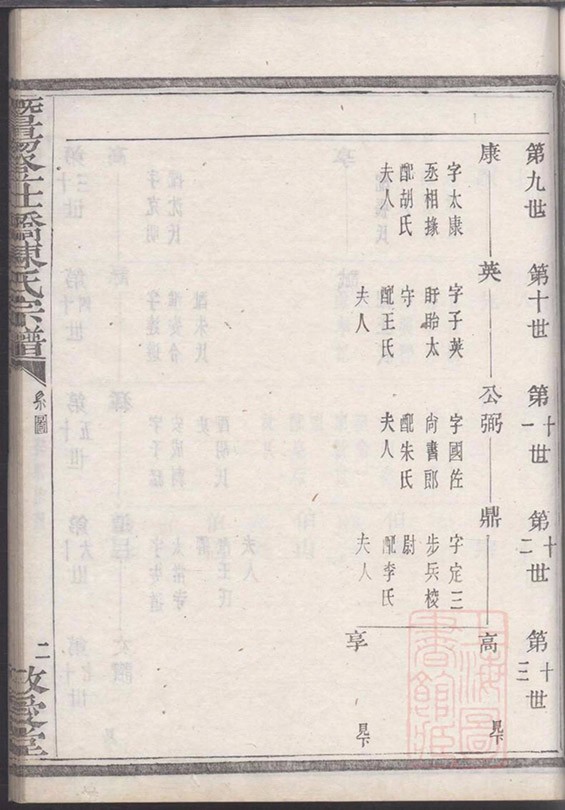 第九世
第十世
第十一世
第十二世
第十三世
康
字太康
丞相掾
配胡氏
夫人
英
字子英
盱眙太
守
配王氏
夫人
公弼
字國佐
尚書郎
配朱氏
夫人
鼎
字定三
步兵校
尉
配李氏
夫人
高
見下
享
見下
陳氏宗譜
系圖
二
敦愛堂